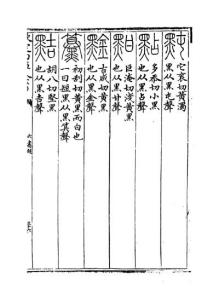 黗
它袞切黃濁
黑从黑屯聲
點
多忝切小黑
也从黑占聲
黚
巨淹切淺黃黑
也从黑甘聲
古咸切黃黑
也从黑金聲
初刮切黃黑而白也
一曰短黑从黑算聲
黠
胡八切堅黑
也从黑吉聲